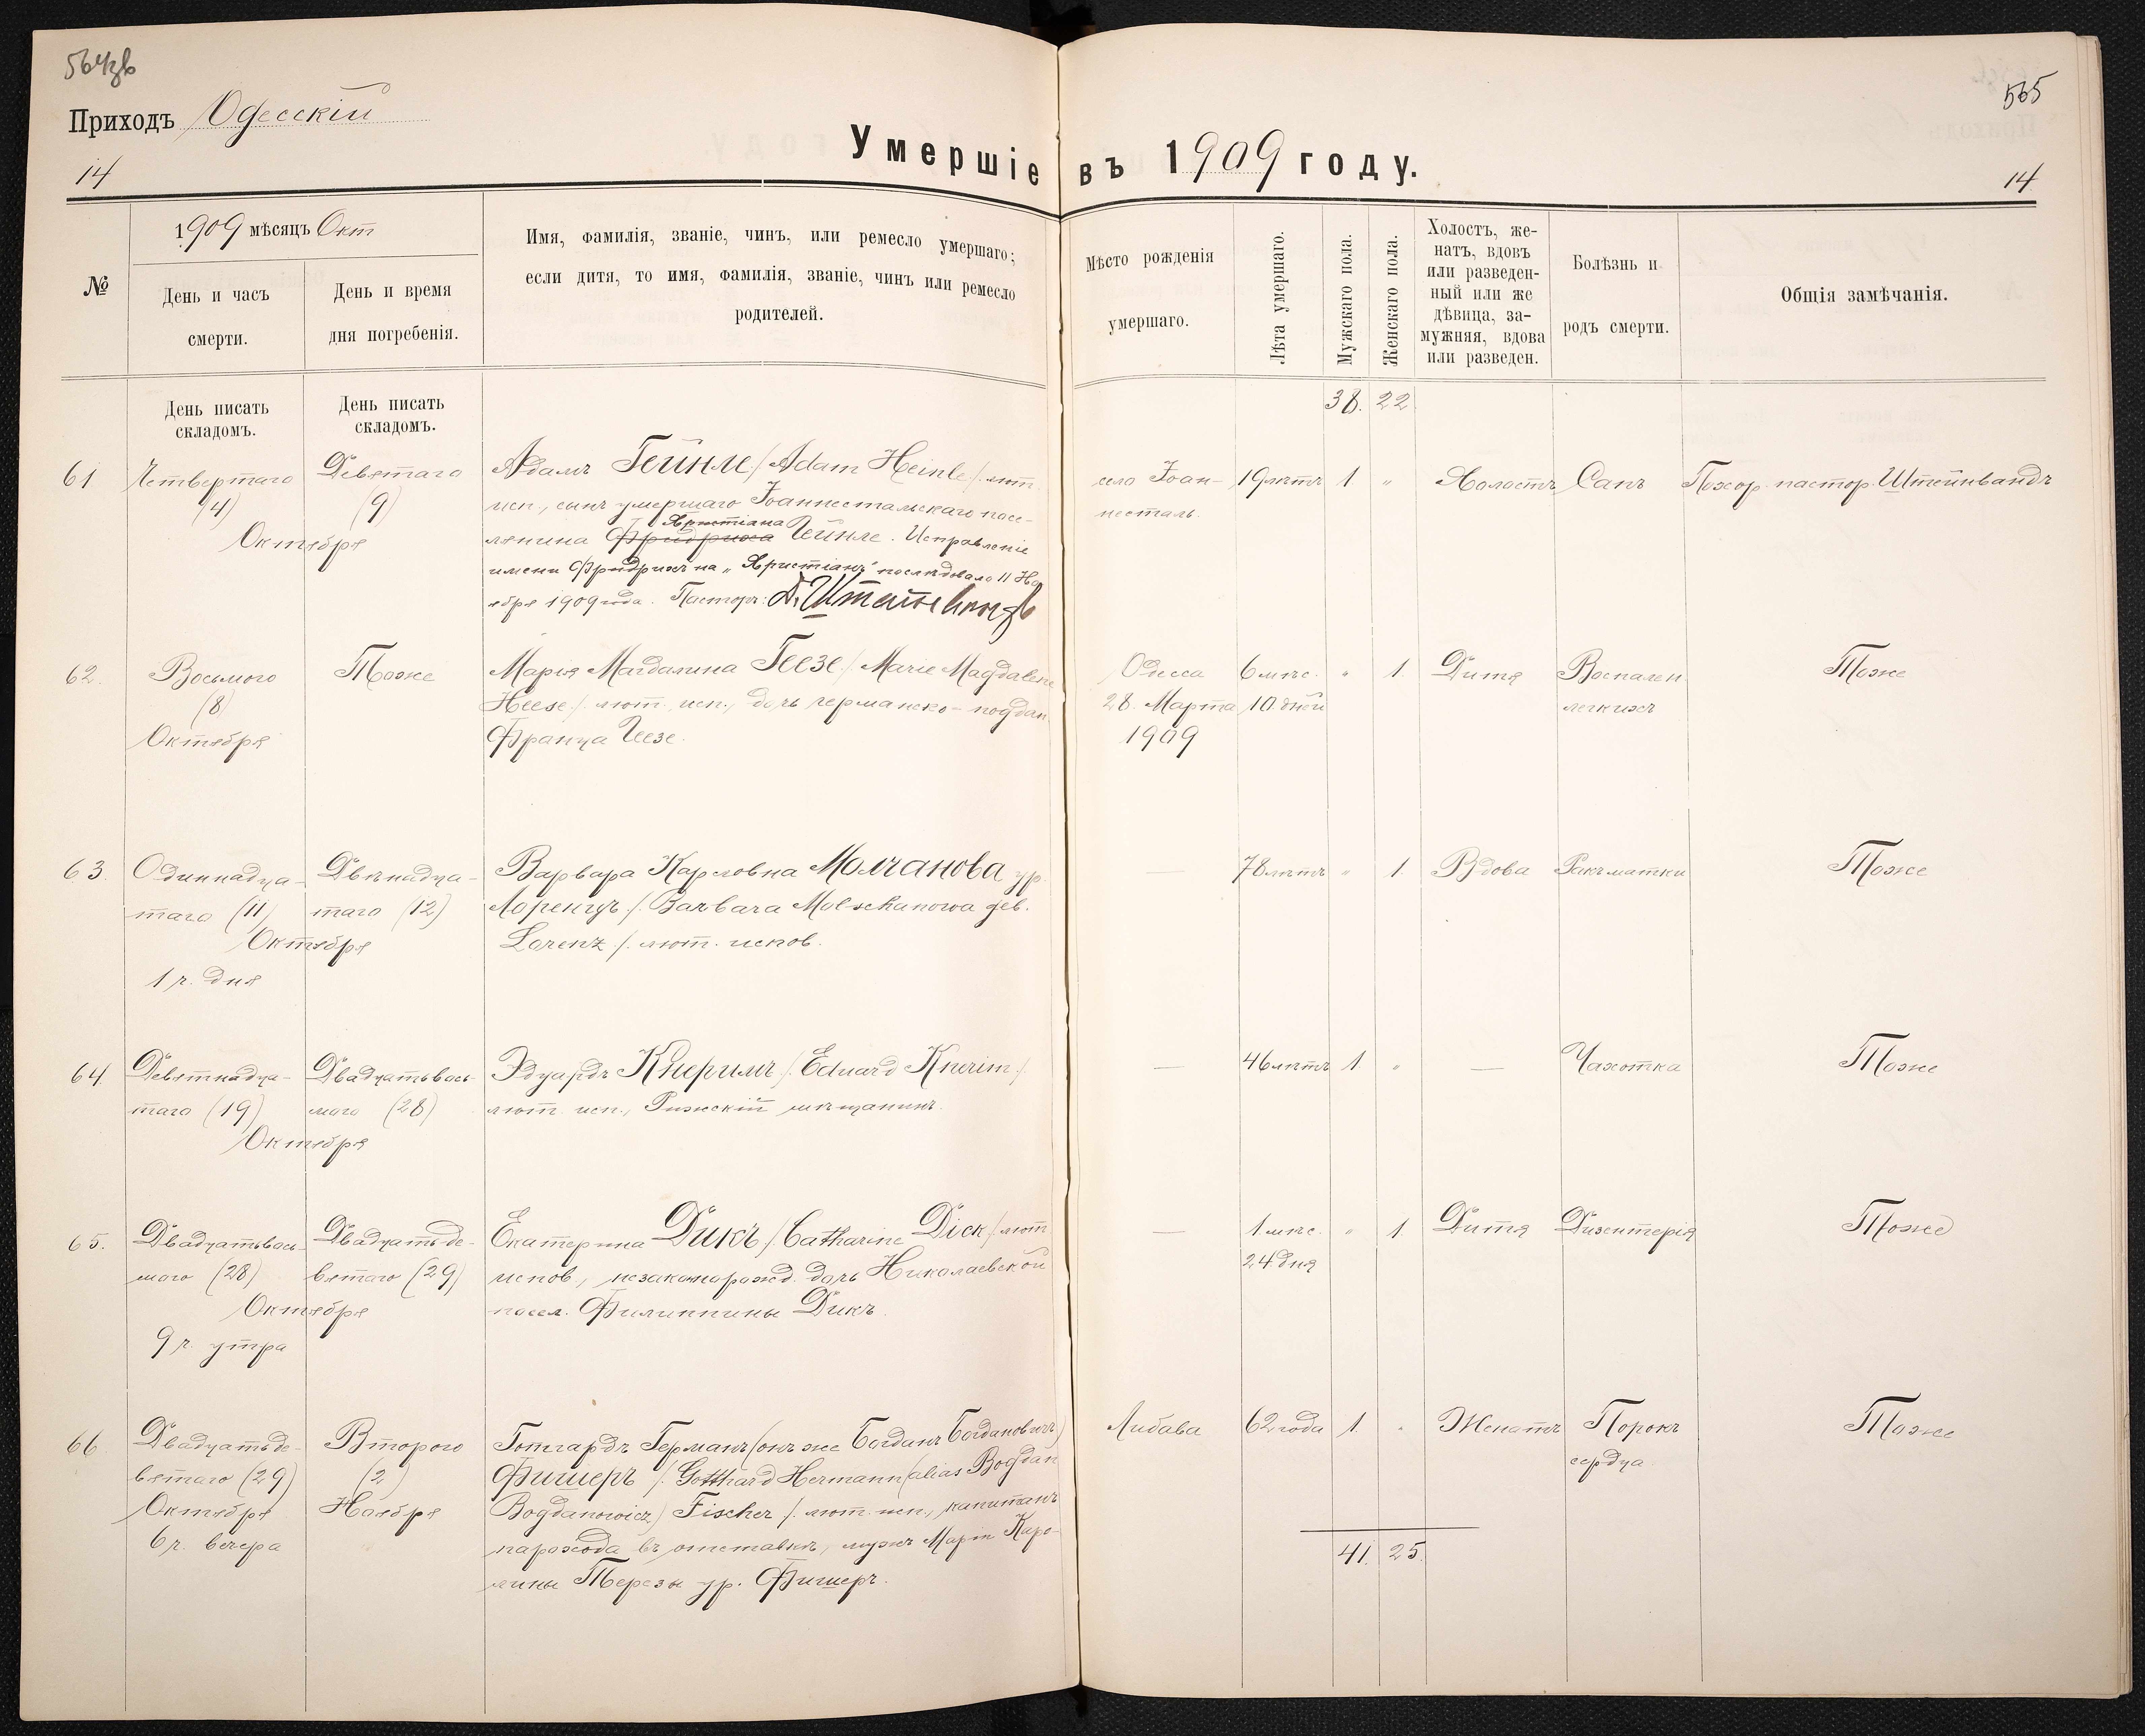 564
565
Приходъ Одесскій
Умершіе въ 1909 году.
14
14
№
1909 мѣсяцъ Окт
День и часъ
смерти.
День и время
дня погребенія.
Имя, фамилія, званіе, чинъ, или ремесло умершаго;
если дитя, то имя, фамилія, званіе, чинъ или ремесло
родителей.
Мѣсто рожденія
умершаго.
Лѣта умершаго.
Мужскаго пола.
Женскаго пола.
Холостъ, же-
натъ, вдовъ
или разведен-
ный или же
дѣвица, за-
мужняя, вдова
или разведен.
Болѣзнь и
родъ смерти.
Общія замѣчанія.
День писать
складомъ.
День писать
складомъ.
38. 22
61
Четвертаго
(4)
Девятаго
(9)
Октября
Адамъ Гейнле /: Adam Heinle /: лют.
исп., сынъ умершаго Іоаннестальскаго посе-
Христіана
лянина Фридриха Гейнле. Исправленіе
имени Фридрихъ на „Христіанъ" послѣдовало 11 Но
ября 1909 года. Пасторъ: Д. Штейнвандъ
село Іоан-
несталь.
19 лѣтъ
1
"
Холостъ
Сапъ
Похор. пастор. Штейнвандъ
62.
Восьмого
(8)
Октября
Тоже
Марія Магдалина Геезе /: Marie Magdalene
Heese /: лют. исп., дочь германско-поддан.
Франца Геезе.
Одесса
28. Марта
1909
6 мѣс.
10 дней
"
1.
Дитя
Воспален.
легкихъ
Тоже
63.
Одиннадца-
таго (11)
Двѣнадца-
таго (12)
Октября
1 ч. дня
Варвара Карловна Молчанова ур.
Лоренцъ /: Barbara Molschanowa geb.
Lorenz /: лют. испов.
—
78 лѣтъ
"
1.
Вдова
Ракъ матки
Тоже
64.
Девятнадца-
таго (19)
Двадцатьвось-
маго (28)
Октября
Эдуардъ Кнеримъ /: Eduard Knerim /:
лют. исп., Рижскій мѣщанинъ.
—
46 лѣтъ
1.
"
—
Чахотка
Тоже
65.
Двадцатьвось-
маго (28)
Двадцать де-
вятаго (29)
Октября
9 ч. утра
Екатерина Дикъ /: Catharine Dick /: лют.
испов., незаконорожд. дочь Николаевской
посел. Филиппины Дикъ.
—
1 мѣс.
24 дня
"
1.
Дитя
Дизентерія
Тоже
66
Двадцать де-
вятаго (29)
Октября
6 ч. вечера
Второго
(2)
Ноября
Готгардъ Германъ (онъ же Богданъ Богдановичъ)
Фишеръ /: Gotthard Hermann (alias Bogdan
Bogdanowicz) Fischer /: лют. исп., капитанъ
парохода въ отставкѣ, мужъ Маріи Каро-
лины Терезы ур. Фишеръ.
Либава
62 года
1.
"
Женатъ
Порокъ
сердца.
Тоже
41. 25.